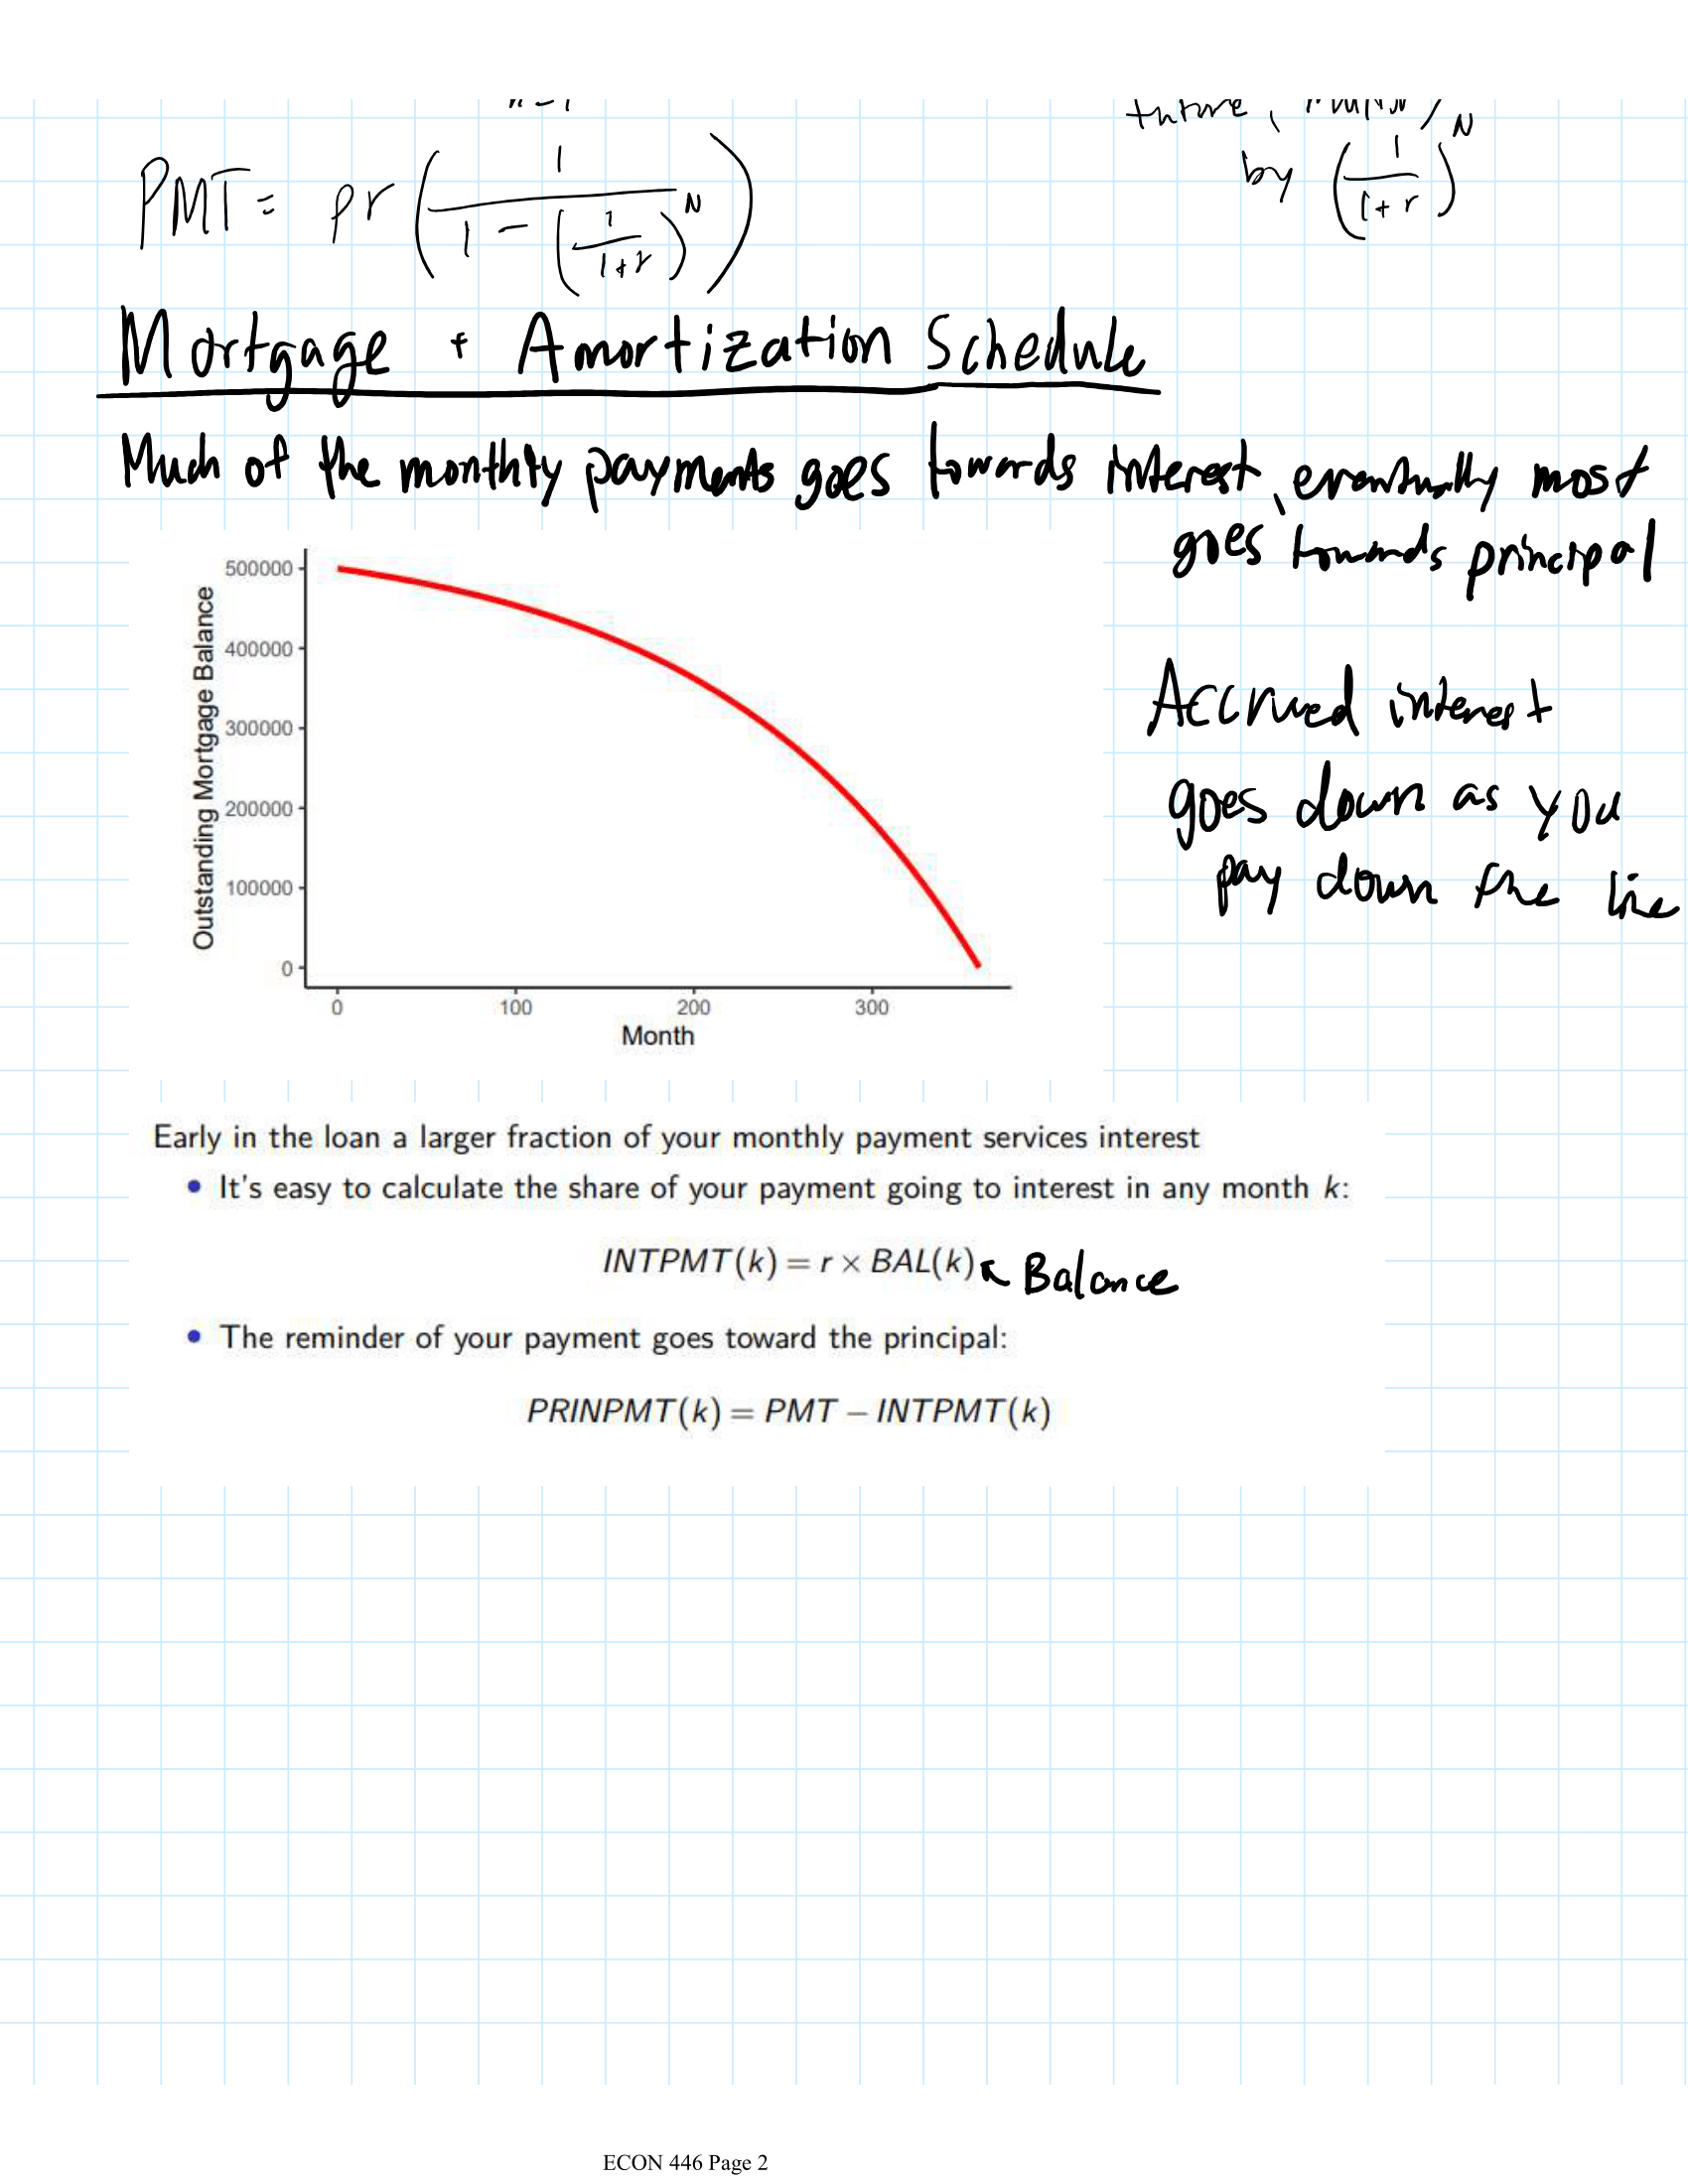 PMT = pr ( 1 / ( 1 - ( 1 / 1+r )^N ) )
by ( 1 / 1+r )^N
Mortgage + Amortization Schedule
Much of the monthly payments goes towards interest, eventually most
goes towards principal
500000
400000
300000
200000
100000
0
Outstanding Mortgage Balance
0 100 200 300
Month
Accrued interest
goes down as you
pay down the line
Early in the loan a larger fraction of your monthly payment services interest
• It's easy to calculate the share of your payment going to interest in any month k:
INTPMT(k) = r × BAL(k) Balance
• The reminder of your payment goes toward the principal:
PRINPMT(k) = PMT − INTPMT(k)
ECON 446 Page 2